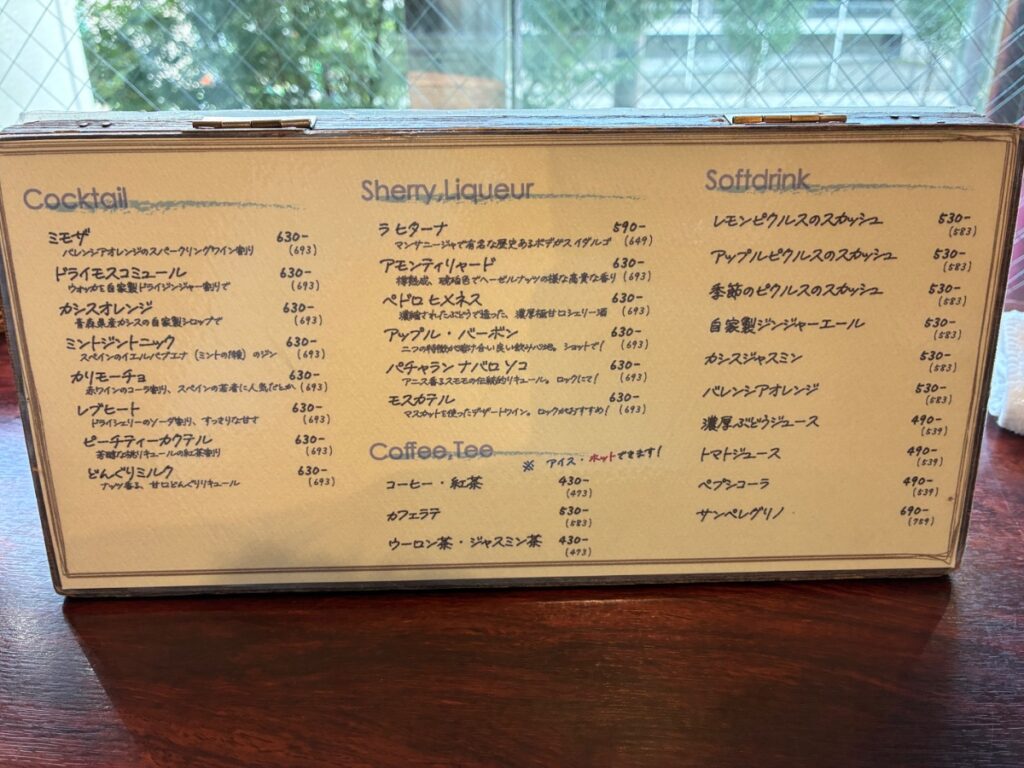 Cocktail
ミモザ 630-
バレンシアオレンジのスパークリングワイン割り (693)
ドライモスコミュール 630-
ウォッカと自家製ドライジンジャー割りで (693)
カシスオレンジ 630-
青森県産カシスの自家製シロップで (693)
ミントジントニック 630-
スペインのイエルバブエナ (ミントの種) のジン (693)
カリモーチョ 630-
赤ワインのコーラ割り、スペインの若者に人気だとか (693)
レブヒート 630-
ドライシェリーのソーダ割り、すっきりな甘さ (693)
ピーチティーカクテル 630-
芳醇な桃リキュールの紅茶割り (693)
どんぐりミルク 630-
ナッツ香る、甘口どんぐりリキュール (693)
Sherry,Liqueur
ラ ヒターナ 590-
マンサニージャで有名な歴史あるボデガス イダルゴ (649)
アモンティリャード 630-
樽熟成、琥珀色でヘーゼルナッツの様な高貴な香り (693)
ペドロ ヒメネス 630-
濃縮されたぶどうで造った、濃厚極甘口シェリー酒 (693)
アップル・バーボン 630-
二つの特徴が溶け合い良い飲み心地。ショットで! (693)
パチャラン ナバロ ソコ 630-
アニス香るスモモの伝統的リキュール。ロックにて! (693)
モスカテル 630-
マスカットを使ったデザートワイン。ロックがおすすめ! (693)
Coffee,Tee
※ アイス・ホットできます!
コーヒー・紅茶 430-
(473)
カフェラテ 530-
(583)
ウーロン茶・ジャスミン茶 430-
(473)
Softdrink
レモンピクルスのスカッシュ 530-
(583)
アップルピクルスのスカッシュ 530-
(583)
季節のピクルスのスカッシュ 530-
(583)
自家製ジンジャーエール 530-
(583)
カシスジャスミン 530-
(583)
バレンシアオレンジ 530-
(583)
濃厚ぶどうジュース 490-
(539)
トマトジュース 490-
(539)
ペプシコーラ 490-
(539)
サンペレグリノ 690-
(759)